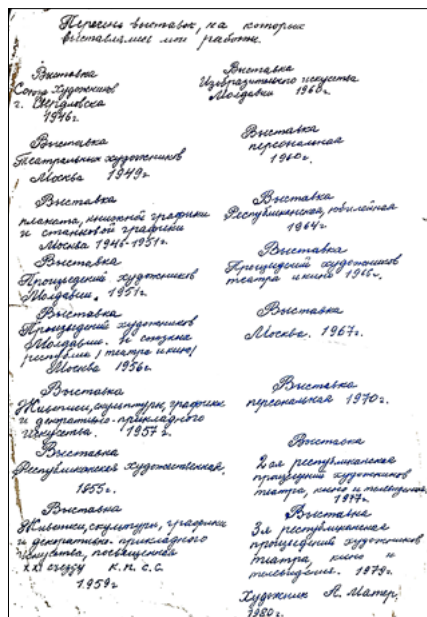 Перечень выставок, на которых
выставлялись мои работы.
Выставка
Союз Художников
г. Свердловска
1946г.
Выставка
Театральных художников
Москва 1949г.
Выставка
плаката, книжной графики
и станковой графики
Москва 1946-1951г.
Выставка
Произведений художников
Молдавии. 1951г.
Выставка
Произведений художников
Молдавии. и
республик / театра и кино /
Москва 1956г.
Выставка
Живописи, скульптуры, графики
и декоративно-прикладного
искусства. 1957г.
Выставка
Республиканская художественная.
1955г.
Выставка
Живописи, скульптуры, графики
и декоративно-прикладного
искусства, посвященная
XXI съезду К.П.С.С.
1959г
Выставка
Изобразительного искусства
Молдавии 1960г.
Выставка
персональная
1960г.
Выставка
Республиканская, юбилейная
1964г.
Выставка
Произведений художников
театра и кино 1966г.
Выставка
Москва. 1967г.
Выставка
персональная 1970г.
Выставка
2ая республиканская
произведений художников
театра, кино и телевидения.
1977г.
Выставка
3я республиканская
произведений художников
театра, кино и
телевидения. 1979г.
Художник А. Матер.
1980г.